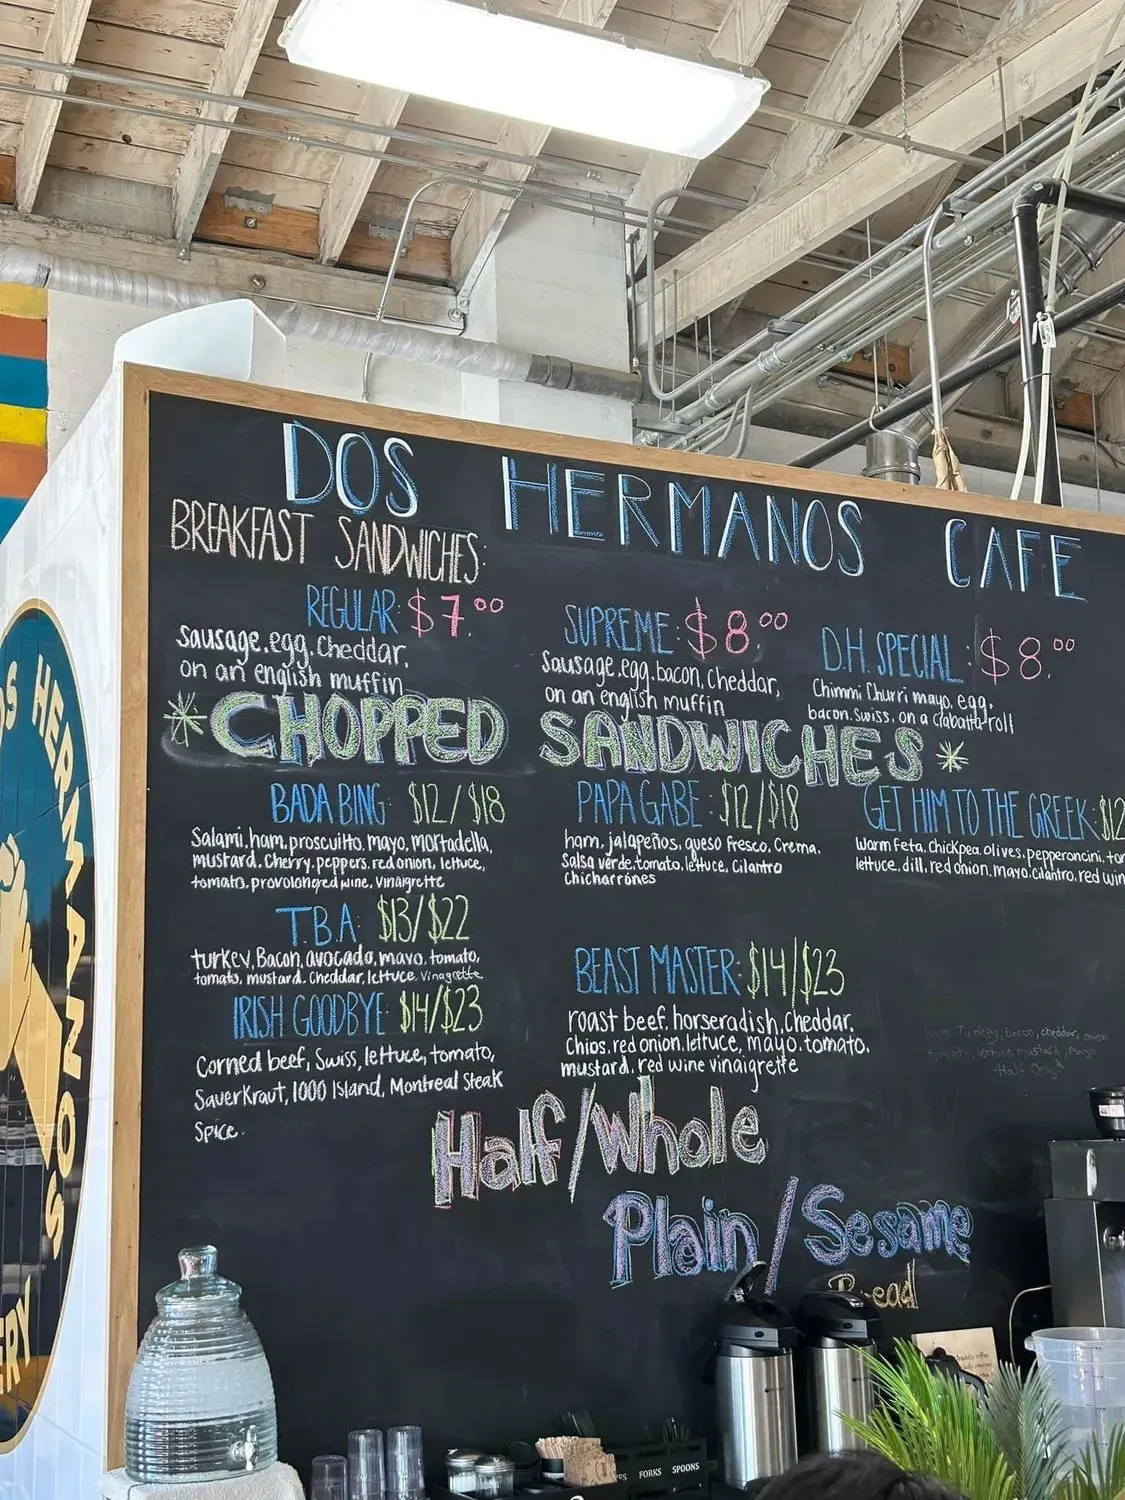 DOS HERMANOS CAFE
BREAKFAST SANDWICHES:
REGULAR: $7.00
sausage, egg, cheddar,
on an english muffin
SUPREME: $8.00
Sausage, egg, bacon, cheddar,
on an english muffin
D.H. SPECIAL: $8.00
Chimmi Churri mayo, egg,
bacon, Swiss, on a ciabatta roll
*CHOPPED SANDWICHES*
BADA BING: $12/$18
Salami, ham, proscuitto, mayo, mortadella,
mustard, Cherry, peppers, red onion, lettuce,
tomato, provolone, red wine, vinaigrette
PAPA GABE: $12/$18
ham, jalapeños, queso fresco, Crema,
Salsa verde, tomato, lettuce, Cilantro
Chicharrónes
GET HIM TO THE GREEK: $12
Warm feta, chickpea, olives, pepperoncini,
lettuce, dill, red onion, mayo, cilantro, red win
T.B.A: $13/$22
turkey, Bacon, avocado, mayo, tomato,
tomato, mustard, cheddar, lettuce, Vinaigrette
BEAST MASTER: $14/$23
roast beef, horseradish, cheddar,
Chips, red onion, lettuce, mayo, tomato,
mustard, red wine vinaigrette
IRISH GOODBYE: $14/$23
Corned beef, Swiss, lettuce, tomato,
Sauerkraut, 1000 Island, Montreal Steak
Spice.
Turkey, bacon, cheddar, onion
tomato, lettuce, mustard, mayo
Half Only
Half/Whole
Plain/Sesame
Bread
S HERMANOS
ERY
FORKS SPOONS